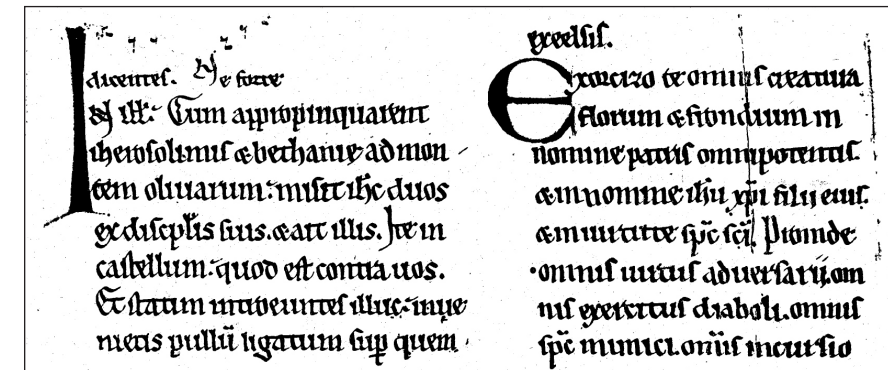 dicentes. Ne forte
IN ill̅: Cum appropinquarent
iherosolimis & bethanie ad mon
tem oliuarum: misit ih̅c duos
ex discipl̅is suis. & ait illis. Ite in
castellum: quod est contra uos.
Et statim introeuntes illuc: inue
nietis pullū ligatum sup̱ quem
excelsis.
Exorcizo te omnis creatura
florum & frondium in
nomine patris omnipotentis.
& in nomine ih̅u xp̅i filii eius.
& in uirtute sp̅c sc̅i. Proinde
omnis uirtus aduersarii. om
nis exercitus diaboli. omnis
sp̅c inimici. om̅is incursio